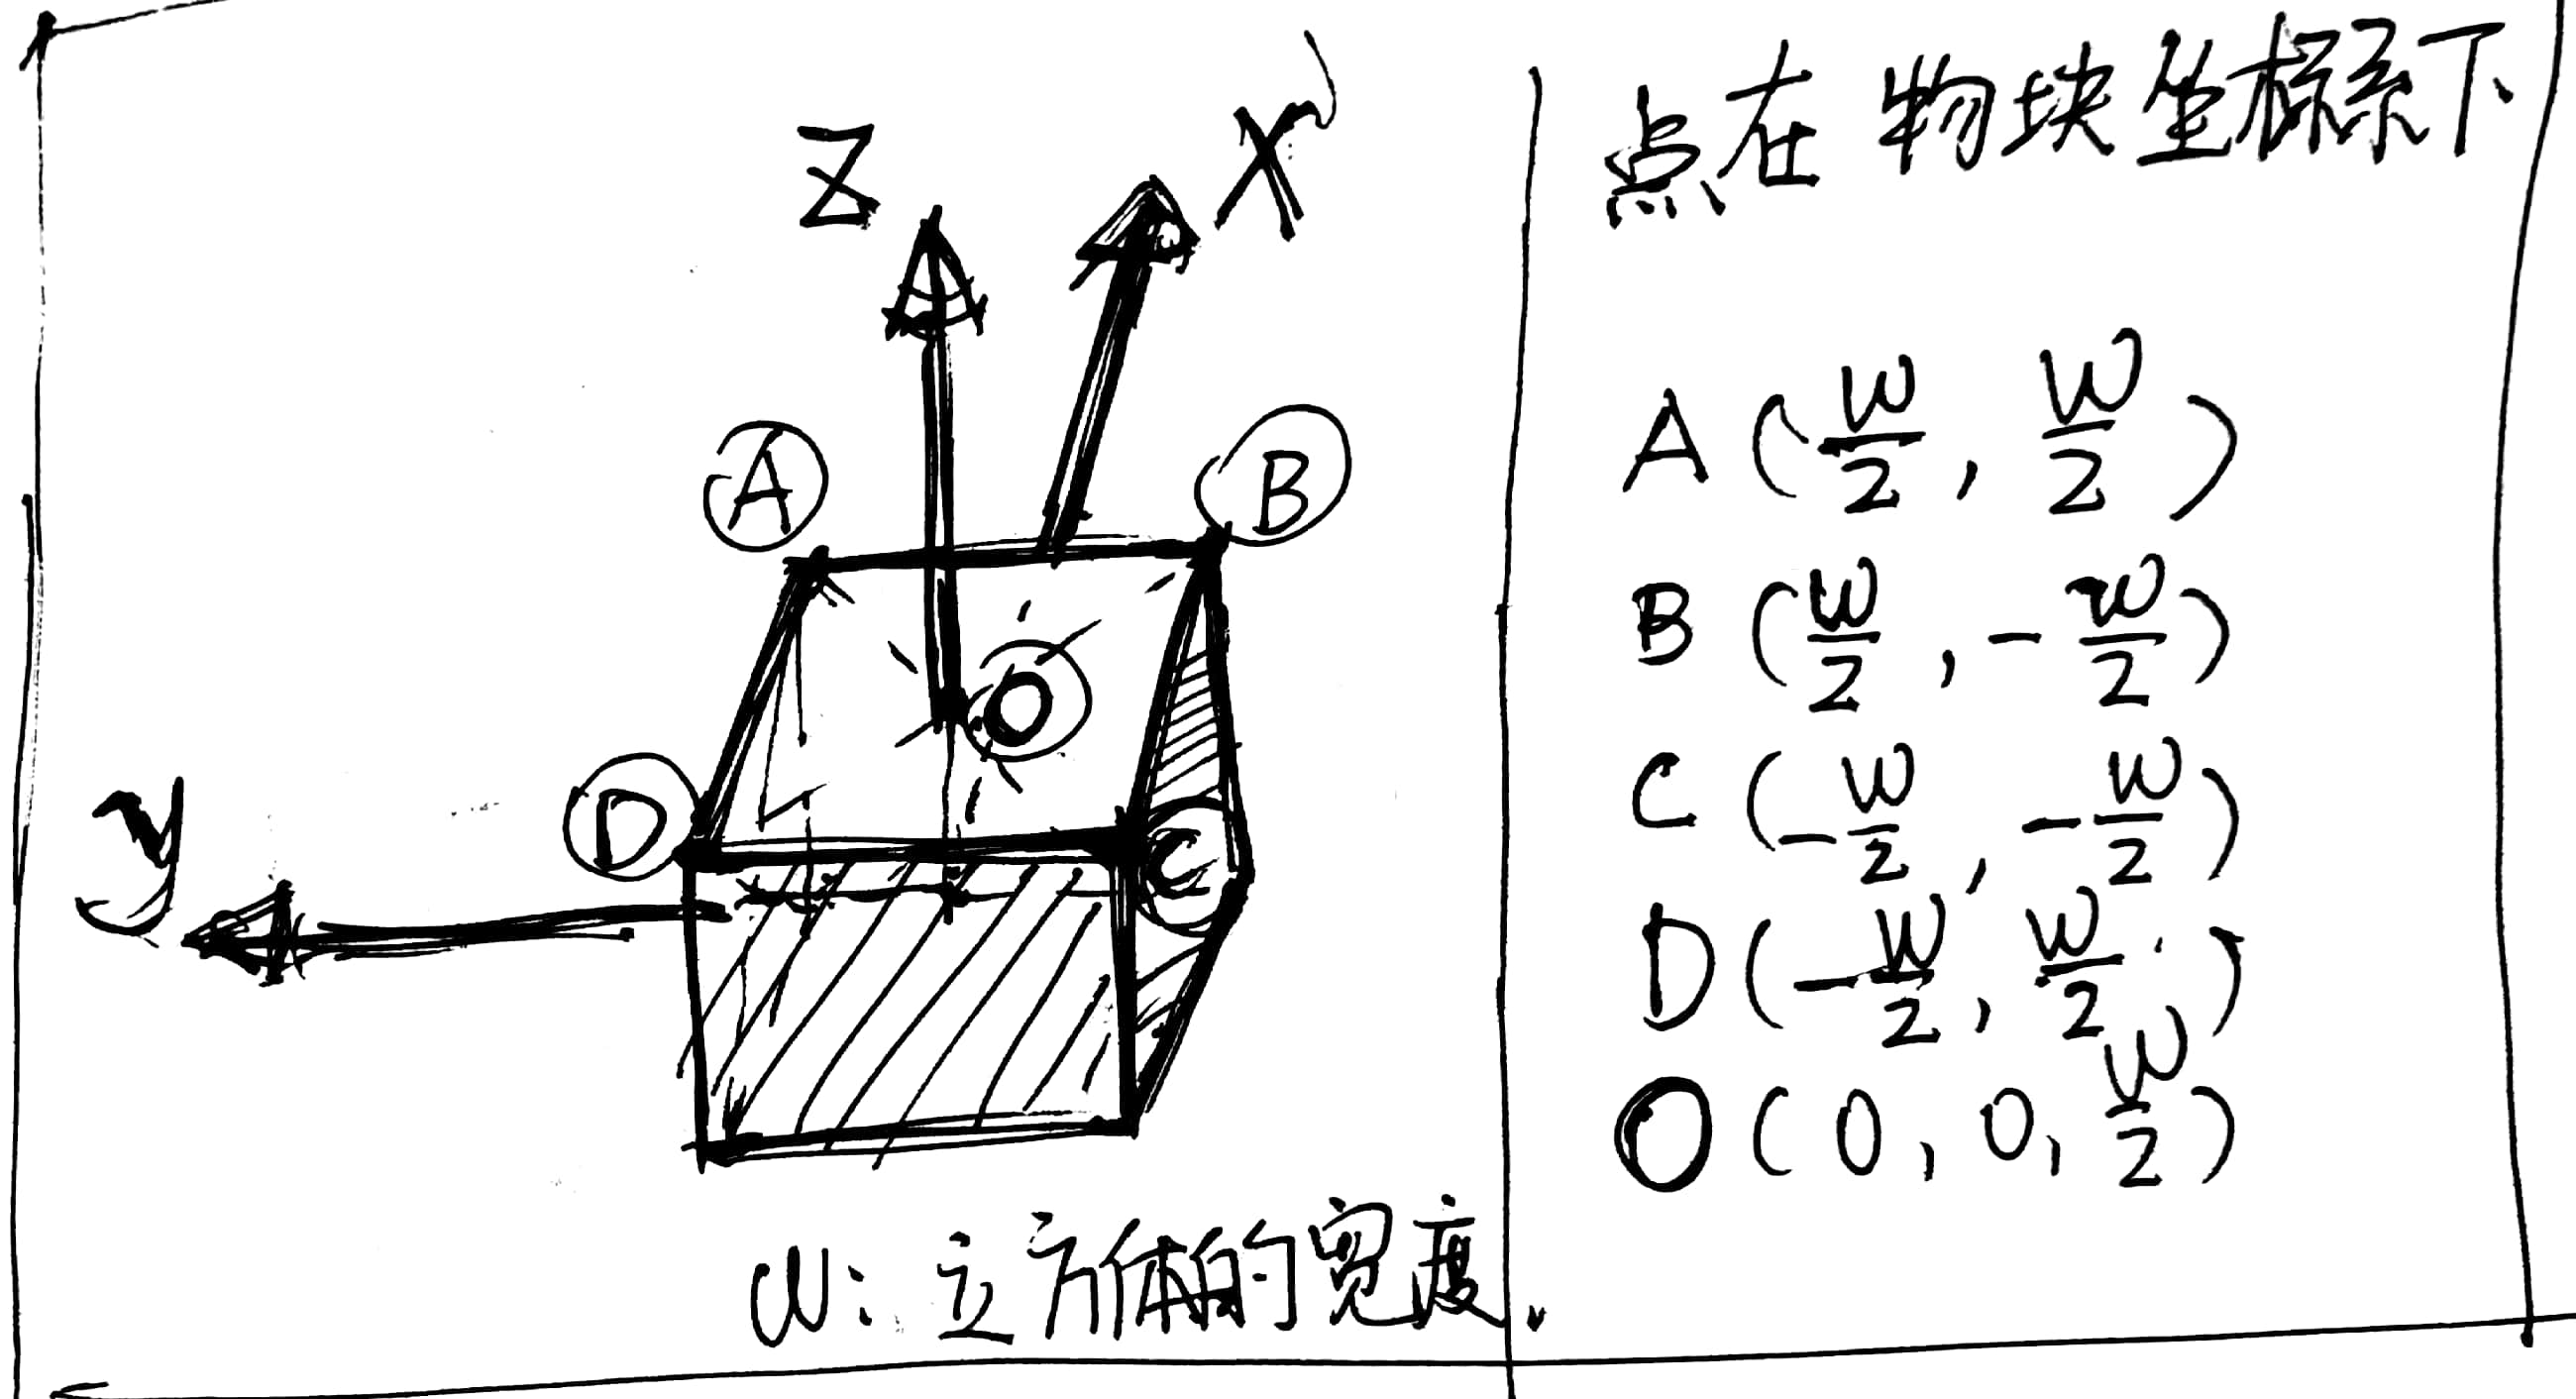 Z
X
A
B
O
D
C
y
W: 立方体的宽度.
点在物块坐标系下
A (W/2, W/2)
B (W/2, -W/2)
C (-W/2, -W/2)
D (-W/2, W/2)
O (0, 0, W/2)